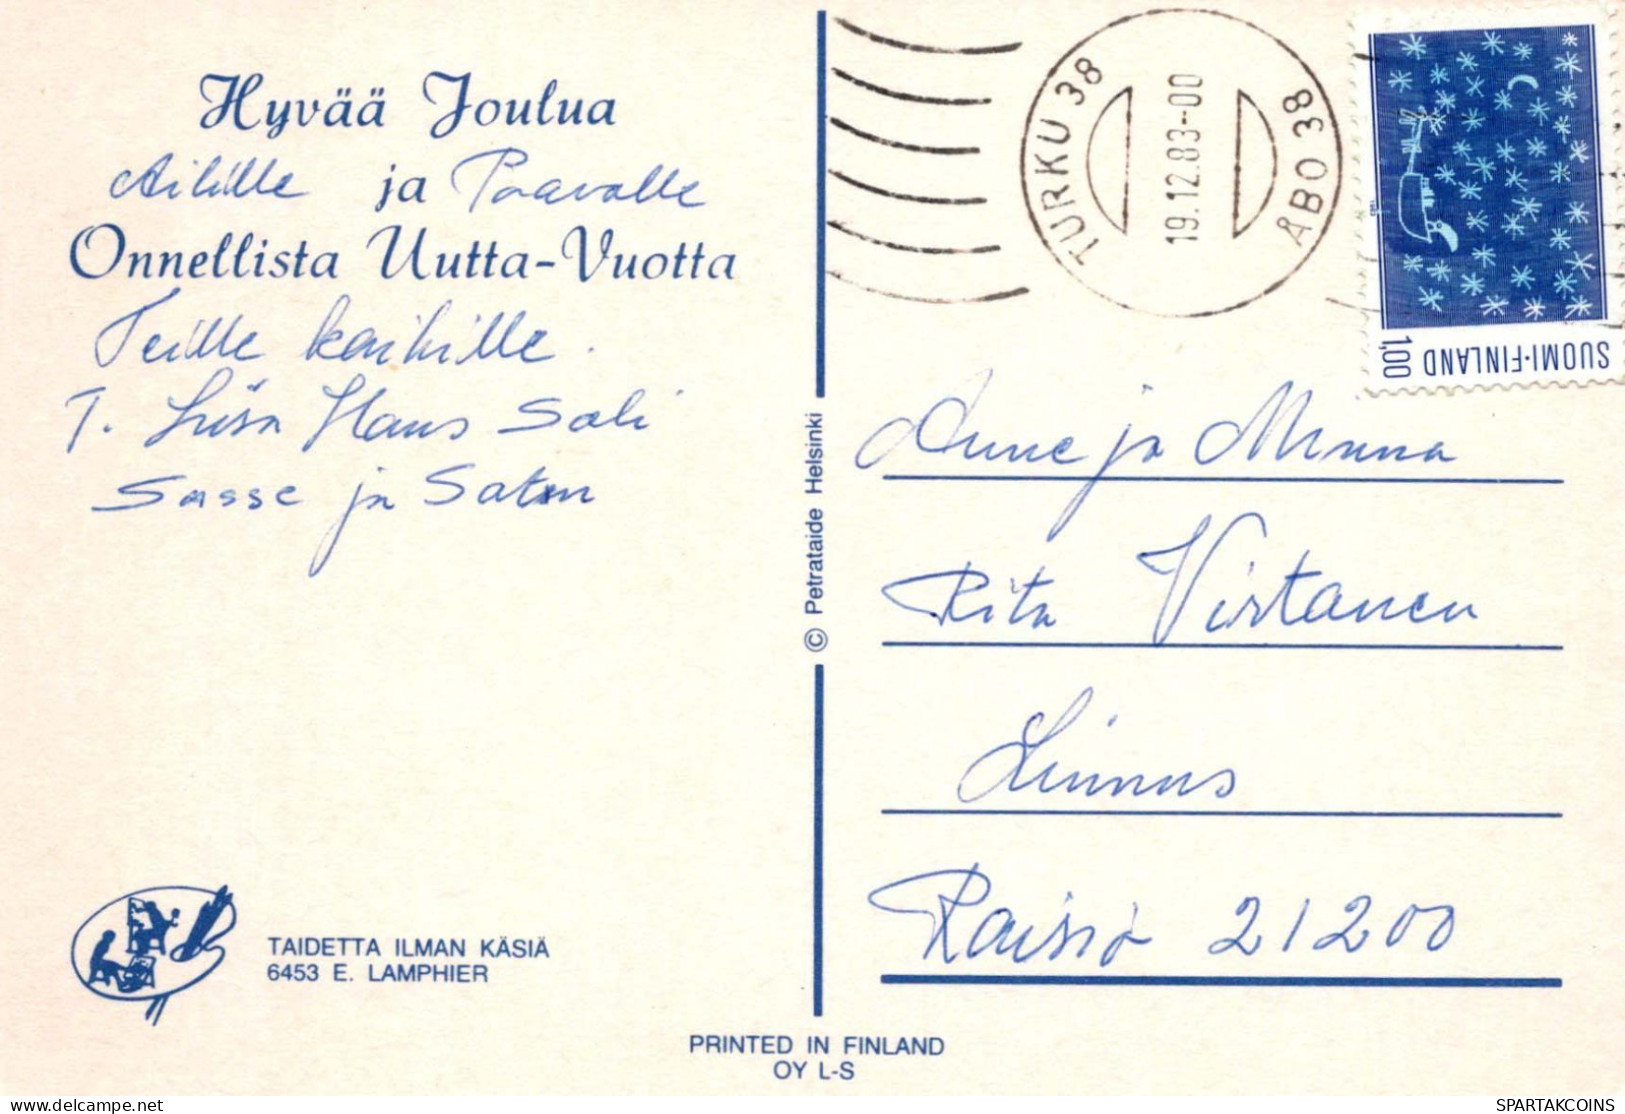 Hyvää Joulua
ja Paavolle
Onnellista Uutta-Vuotta
Teille kaikille.
T. Liisa Hans Soli
Sasse ja
TAIDETTA ILMAN KÄSIÄ
6453 E. LAMPHIER
© Petrataide Helsinki
PRINTED IN FINLAND
OY L-S
TURKU 38
19.12.83-00
ÅBO 38
SUOMI-FINLAND
1,00
Anne ja Minna
Rita Virtanen
Raisio 21200
SPARTAKCOINS
delcampe.net